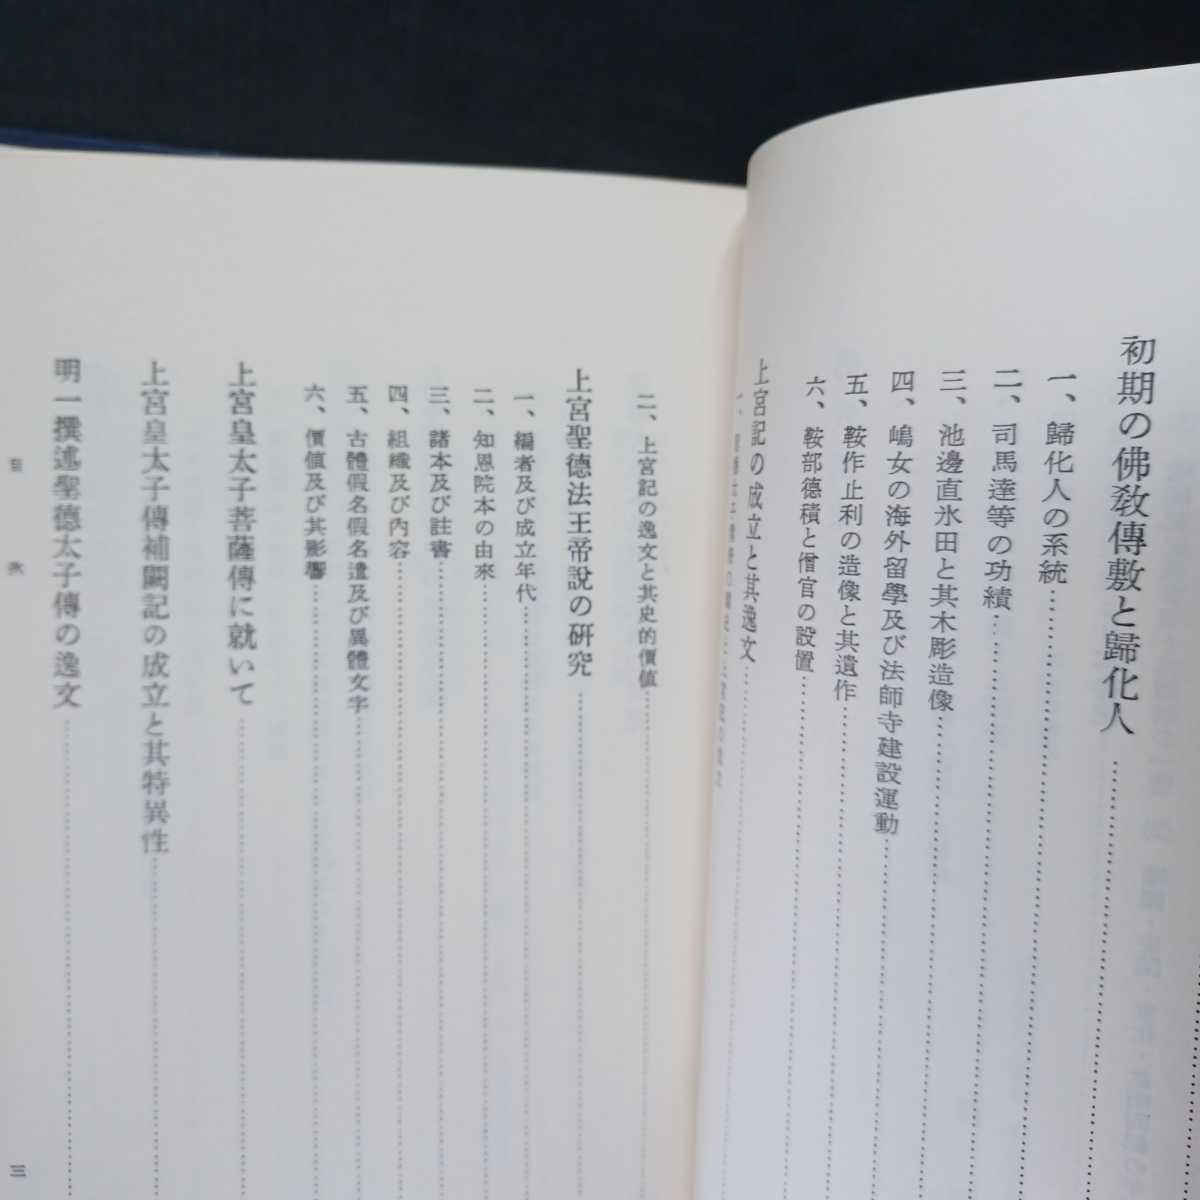 初期の佛敎傳敷と歸化人
一、歸化人の系統
二、司馬達等の功績
三、池邊直氷田と其木彫造像
四、嶋女の海外留學及び法師寺建設運動
五、鞍作止利の造像と其遺作
六、鞍部德積と僧官の設置
上宮記の成立と其逸文
二、上宮記の逸文と其史的價値
上宮聖德法王帝說の硏究
一、編者及び成立年代
二、知恩院本の由來
三、諸本及び註書
四、組織及び內容
五、古體假名假名遣及び異體文字
六、價値及び其影響
上宮皇太子菩薩傳に就いて
上宮皇太子傳補闕記の成立と其特異性
明一撰述聖德太子傳の逸文
目次
三